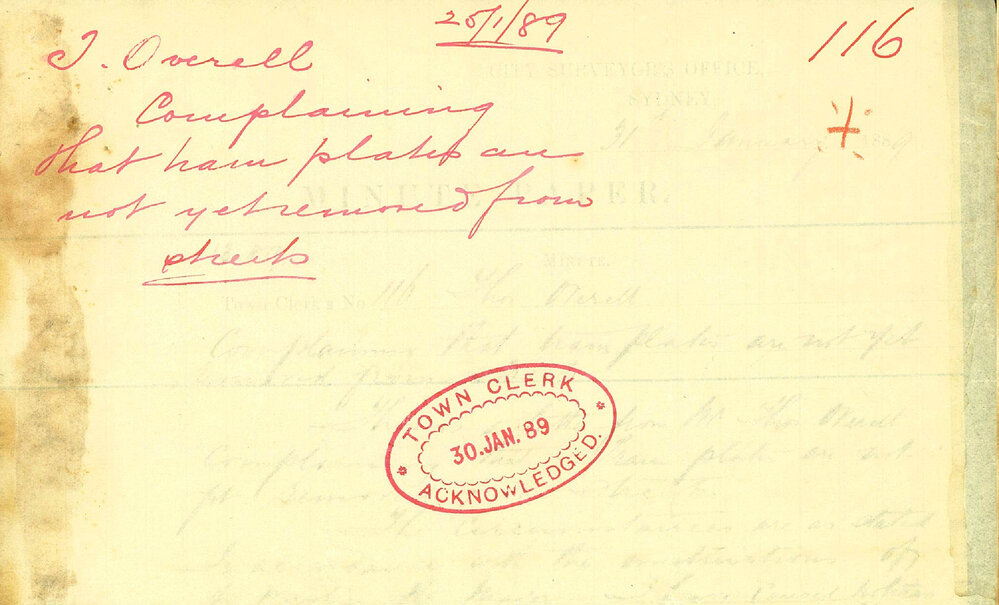 25/1/89
116
T. Overell
Complaining
that tram plates are
not yet removed from
streets
CITY SURVEYOR'S OFFICE,
SYDNEY,
31st January 1889
MINUTE PAPER.
MINUTE.
Town Clerk's No. 116 Thos Overell
Complaining that tram plates are not yet
removed from
TOWN CLERK
30. JAN. 89
ACKNOWLEDGED.
from Mr Thos Overell
tram plates are not
The circumstances are as stated
the instructions of